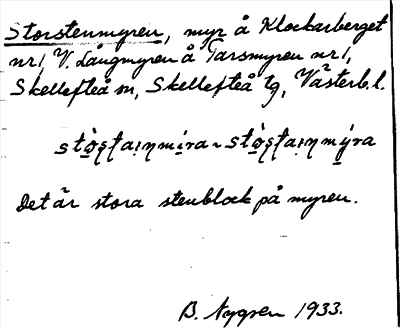 Storstenmyren, myr å Klockarberget
nr 1 V. Långmyren å Tarsmyren nr 1,
Skellefteå sn, Skellefteå tg, Västerb. l.
Det är stora stenblock på myren.
B. Nygren 1933.